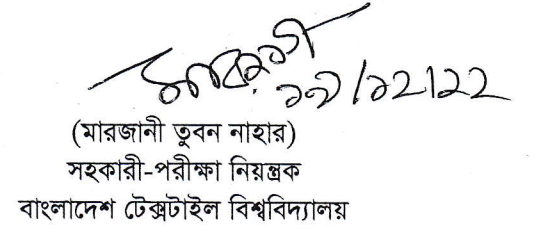 ১৯/১২/২২
(মারজানী তুবন নাহার)
সহকারী-পরীক্ষা নিয়ন্ত্রক
বাংলাদেশ টেক্সটাইল বিশ্ববিদ্যালয়